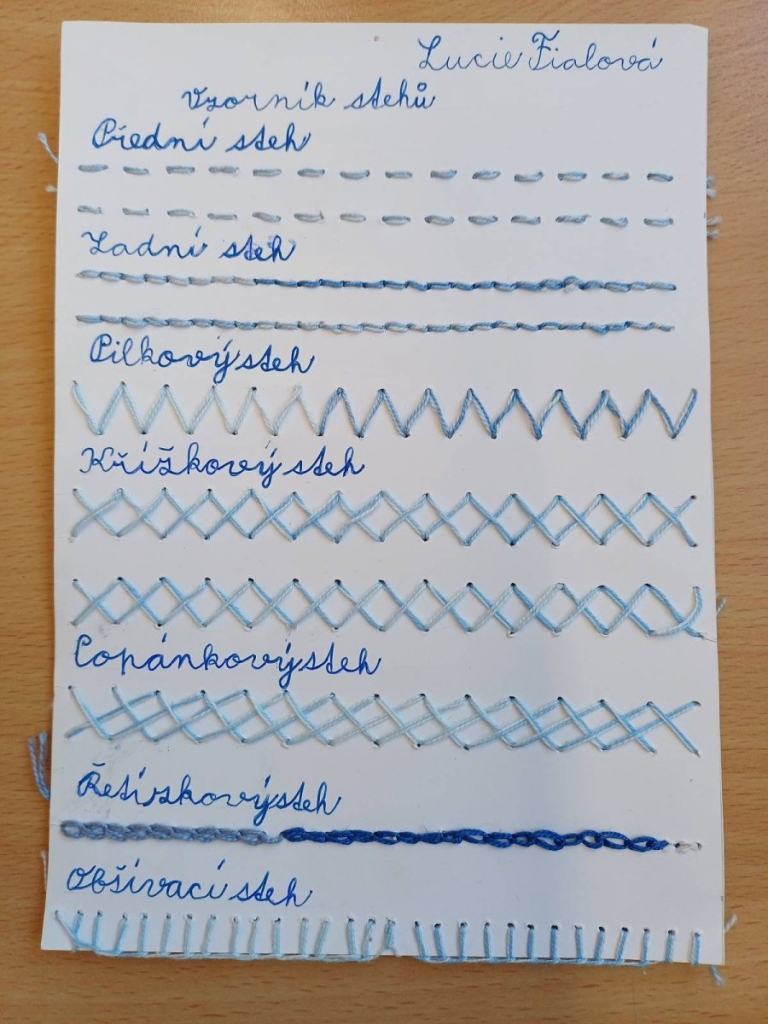 Lucie Fialová
Vzorník stehů
Přední steh
Zadní steh
Pilkový steh
Křížkový steh
Copánkový steh
Řetízkový steh
Obšívací steh